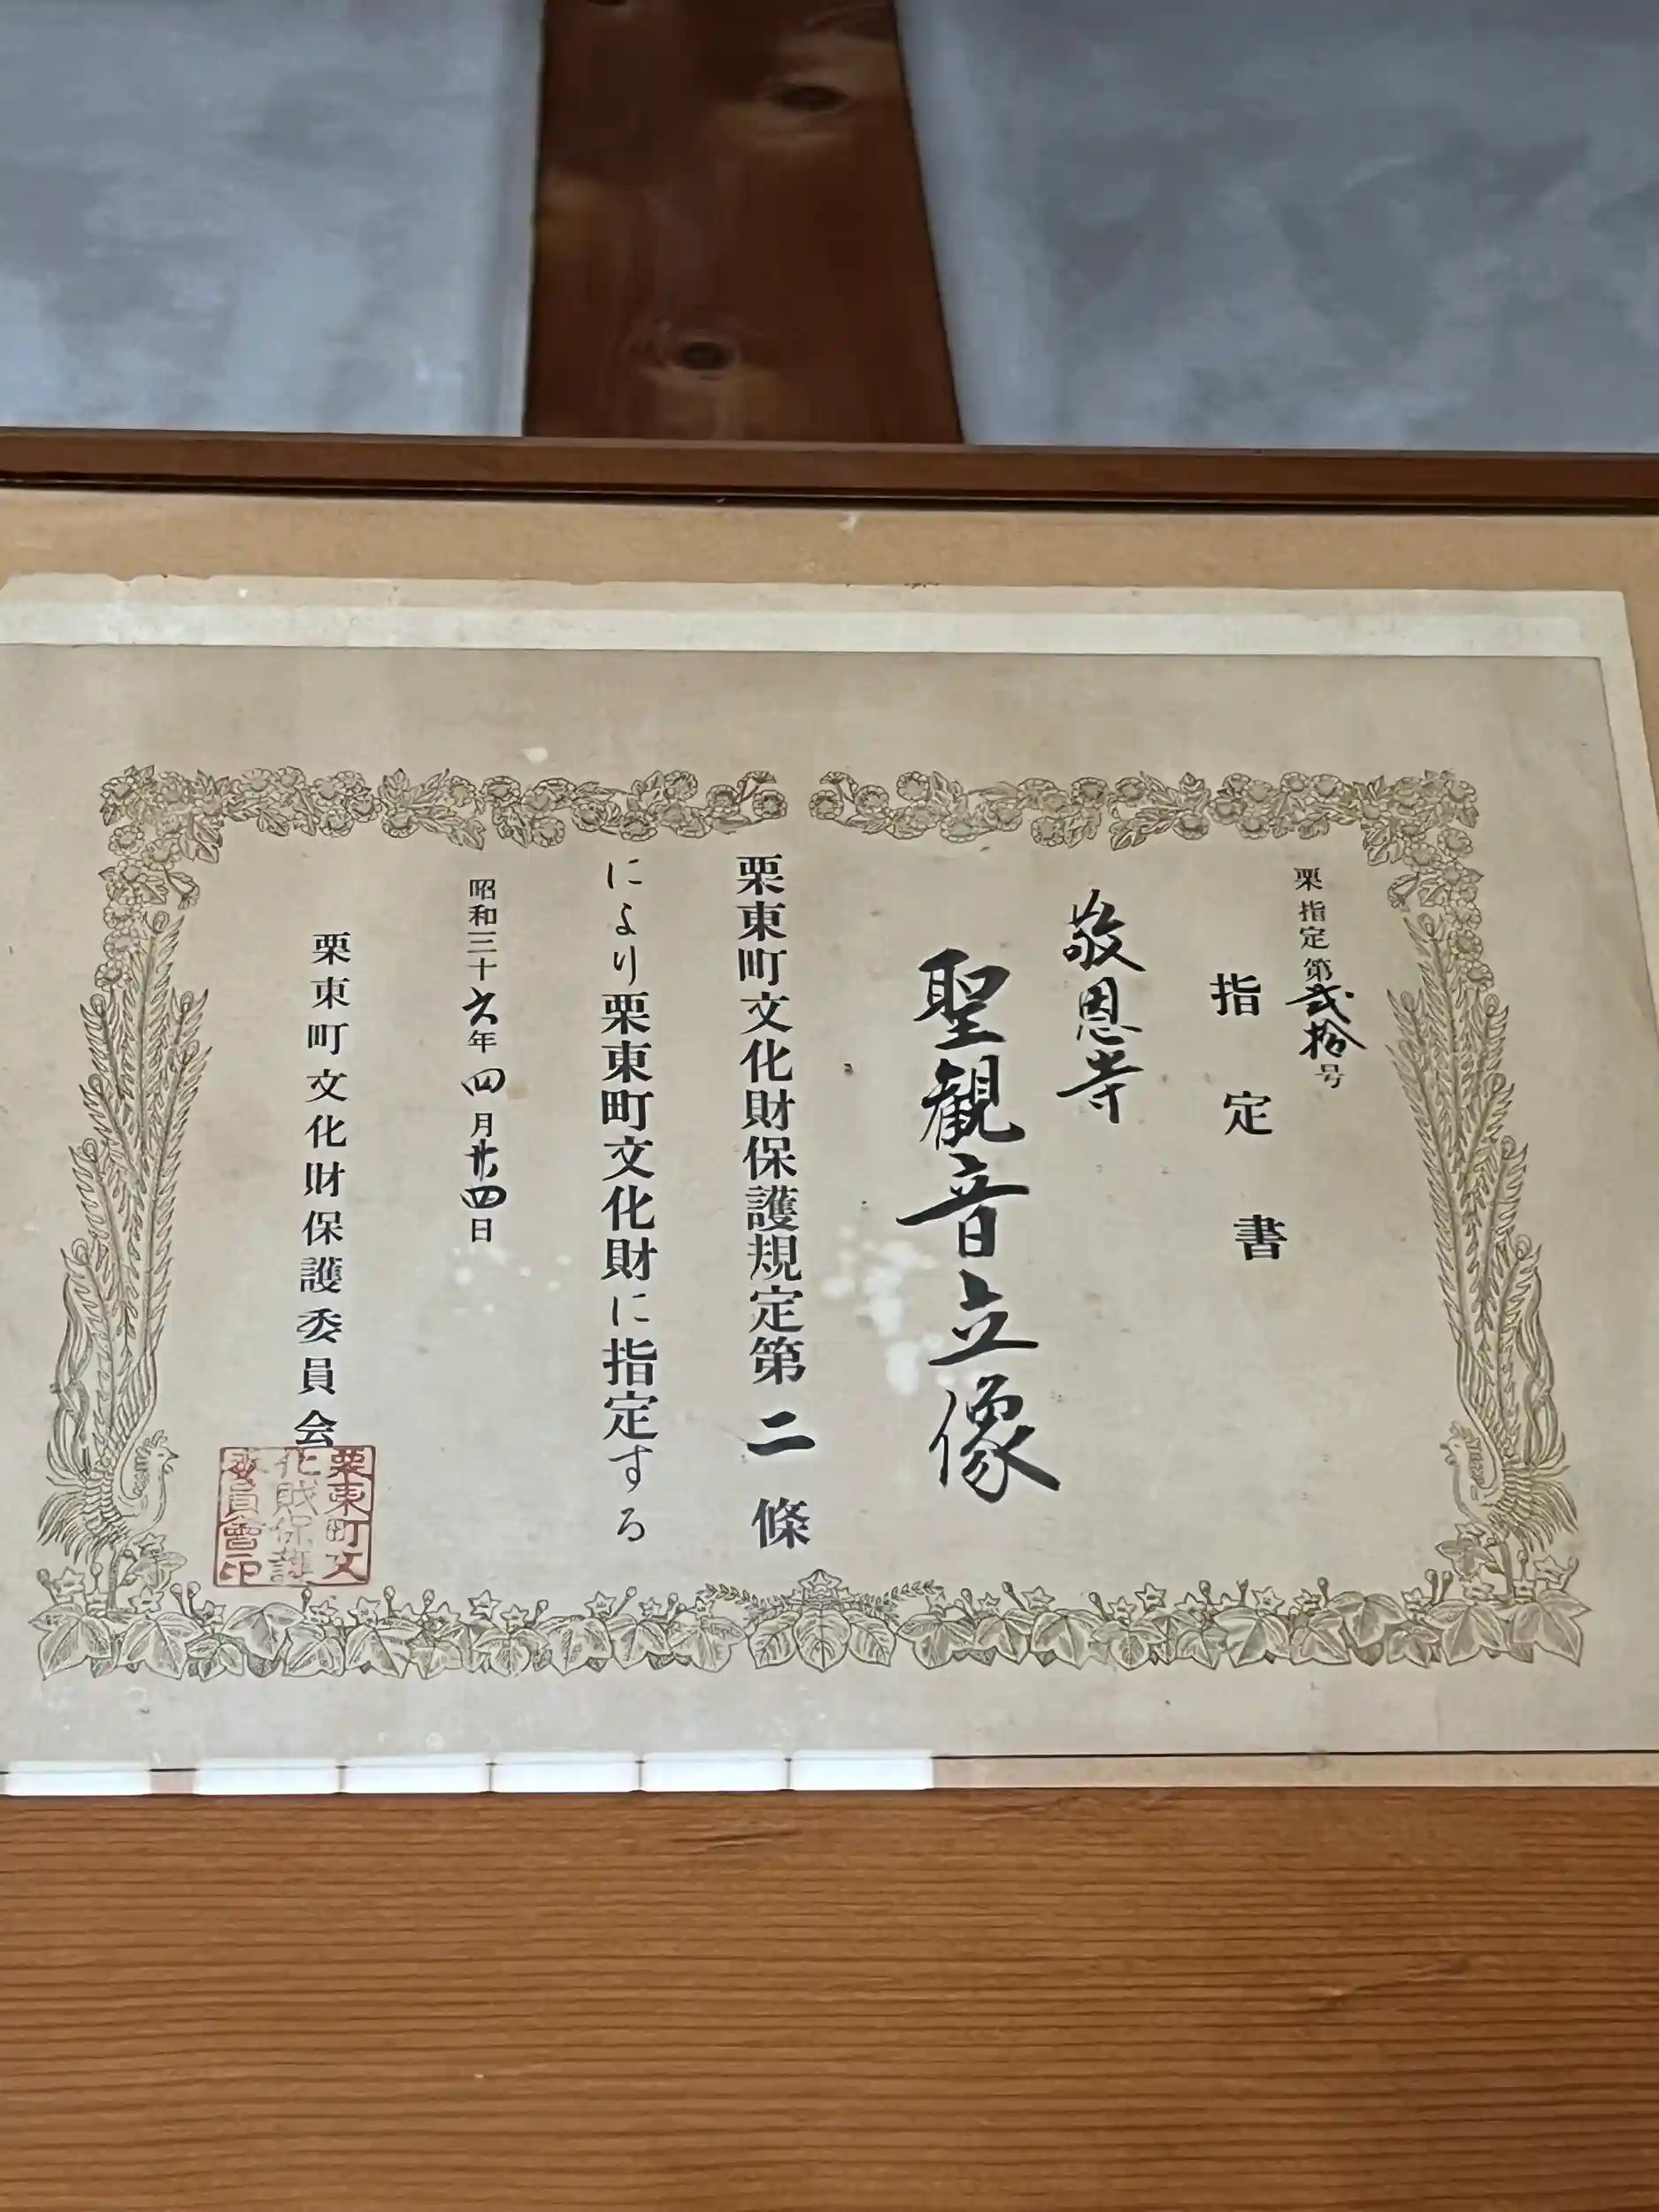 栗指定第弐拾号
指定書
敬恩寺
聖観音立像
栗東町文化財保護規定第二條
により栗東町文化財に指定する
昭和三十六年四月廿四日
栗東町文化財保護委員会
栗東町文
化財保護
委員會印